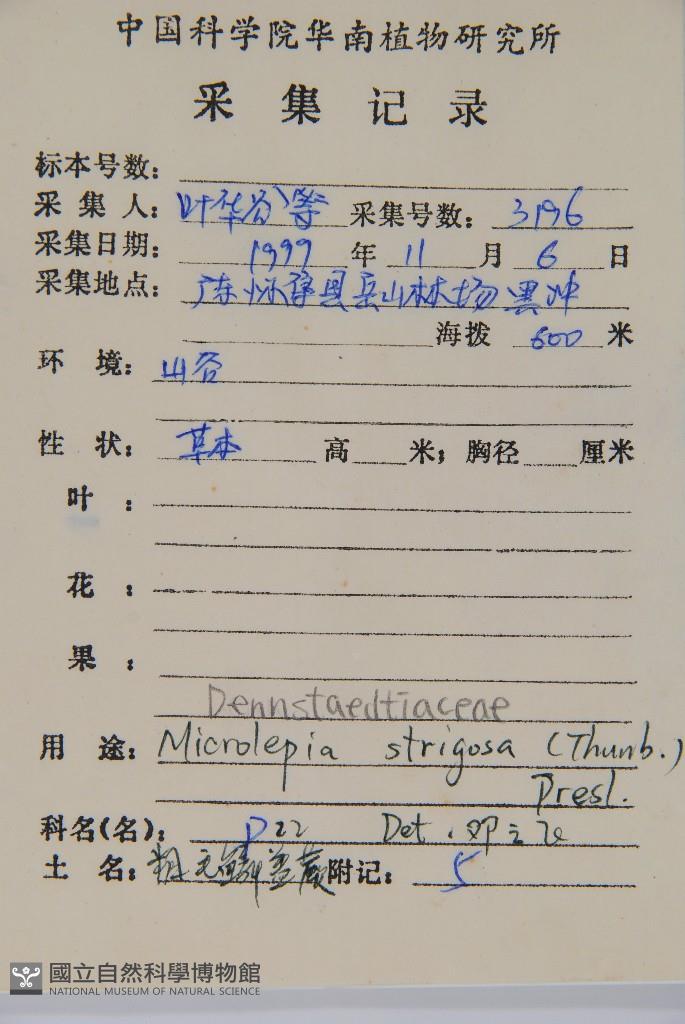 中国科学院华南植物研究所
采集记录
标本号数:
采集人: 叶华谷等 采集号数: 3196
采集日期: 1999 年 11 月 6 日
采集地点: 广东怀集县岳山林场黑冲
海拨 600 米
环境: 山谷
性状: 草本 高 米; 胸径 厘米
叶:
花:
果:
Dennstaedtiaceae
用途: Microlepia strigosa (Thunb.)
Presl.
科名(名): P22 Det. 邓
土名: 粗毛鳞盖蕨 附记: 5
國立自然科學博物館
NATIONAL MUSEUM OF NATURAL SCIENCE